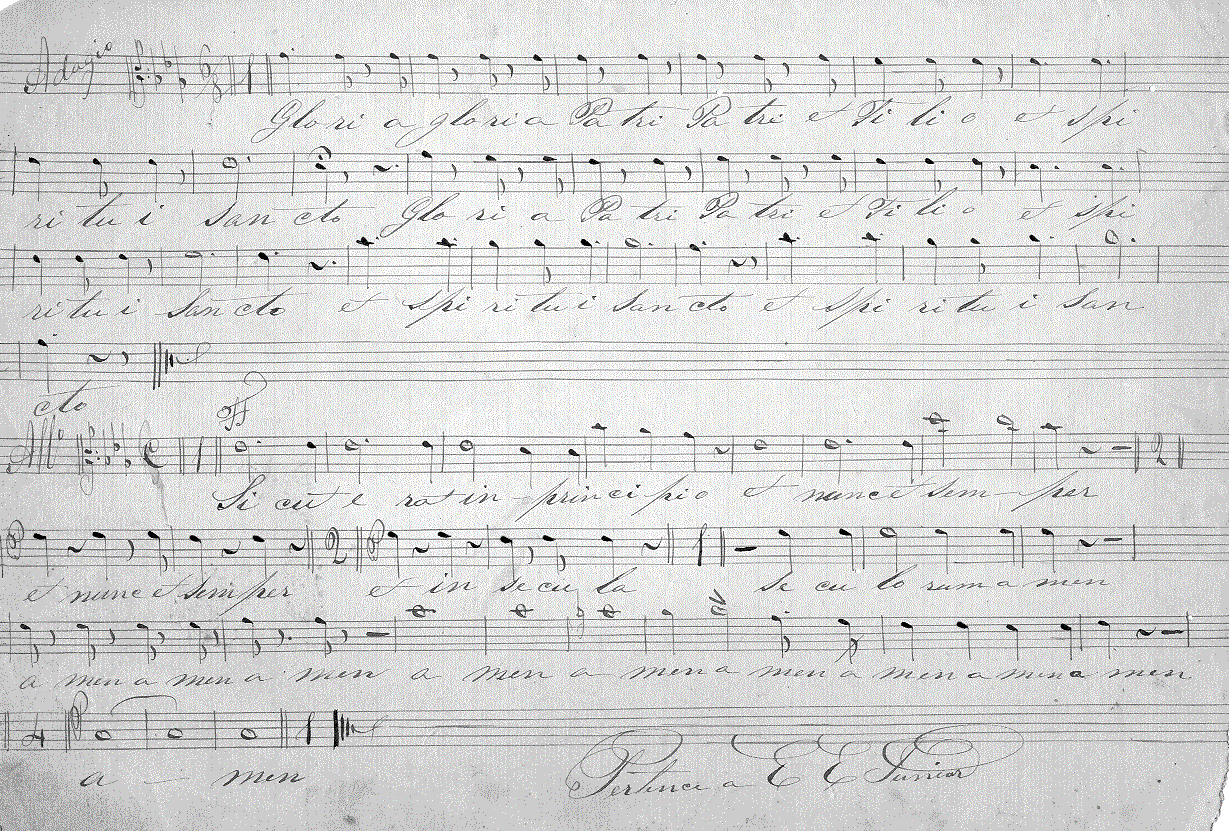 Adagio 6 8 1
Gloria a gloria Patri Patri et Filio et spi
ritui sancto Gloria Patri Patri et Filio et spi
ritui sancto et spiritui sancto et spiritui san
cto
All° C 1 ff
Sicut erat in principio et nunc et semper
2
et nunc et semper et in secula seculorum amen
2 1
a men a men a men a men a men a men a men a men a men
4 1
a — men
Pertence a E E Junior